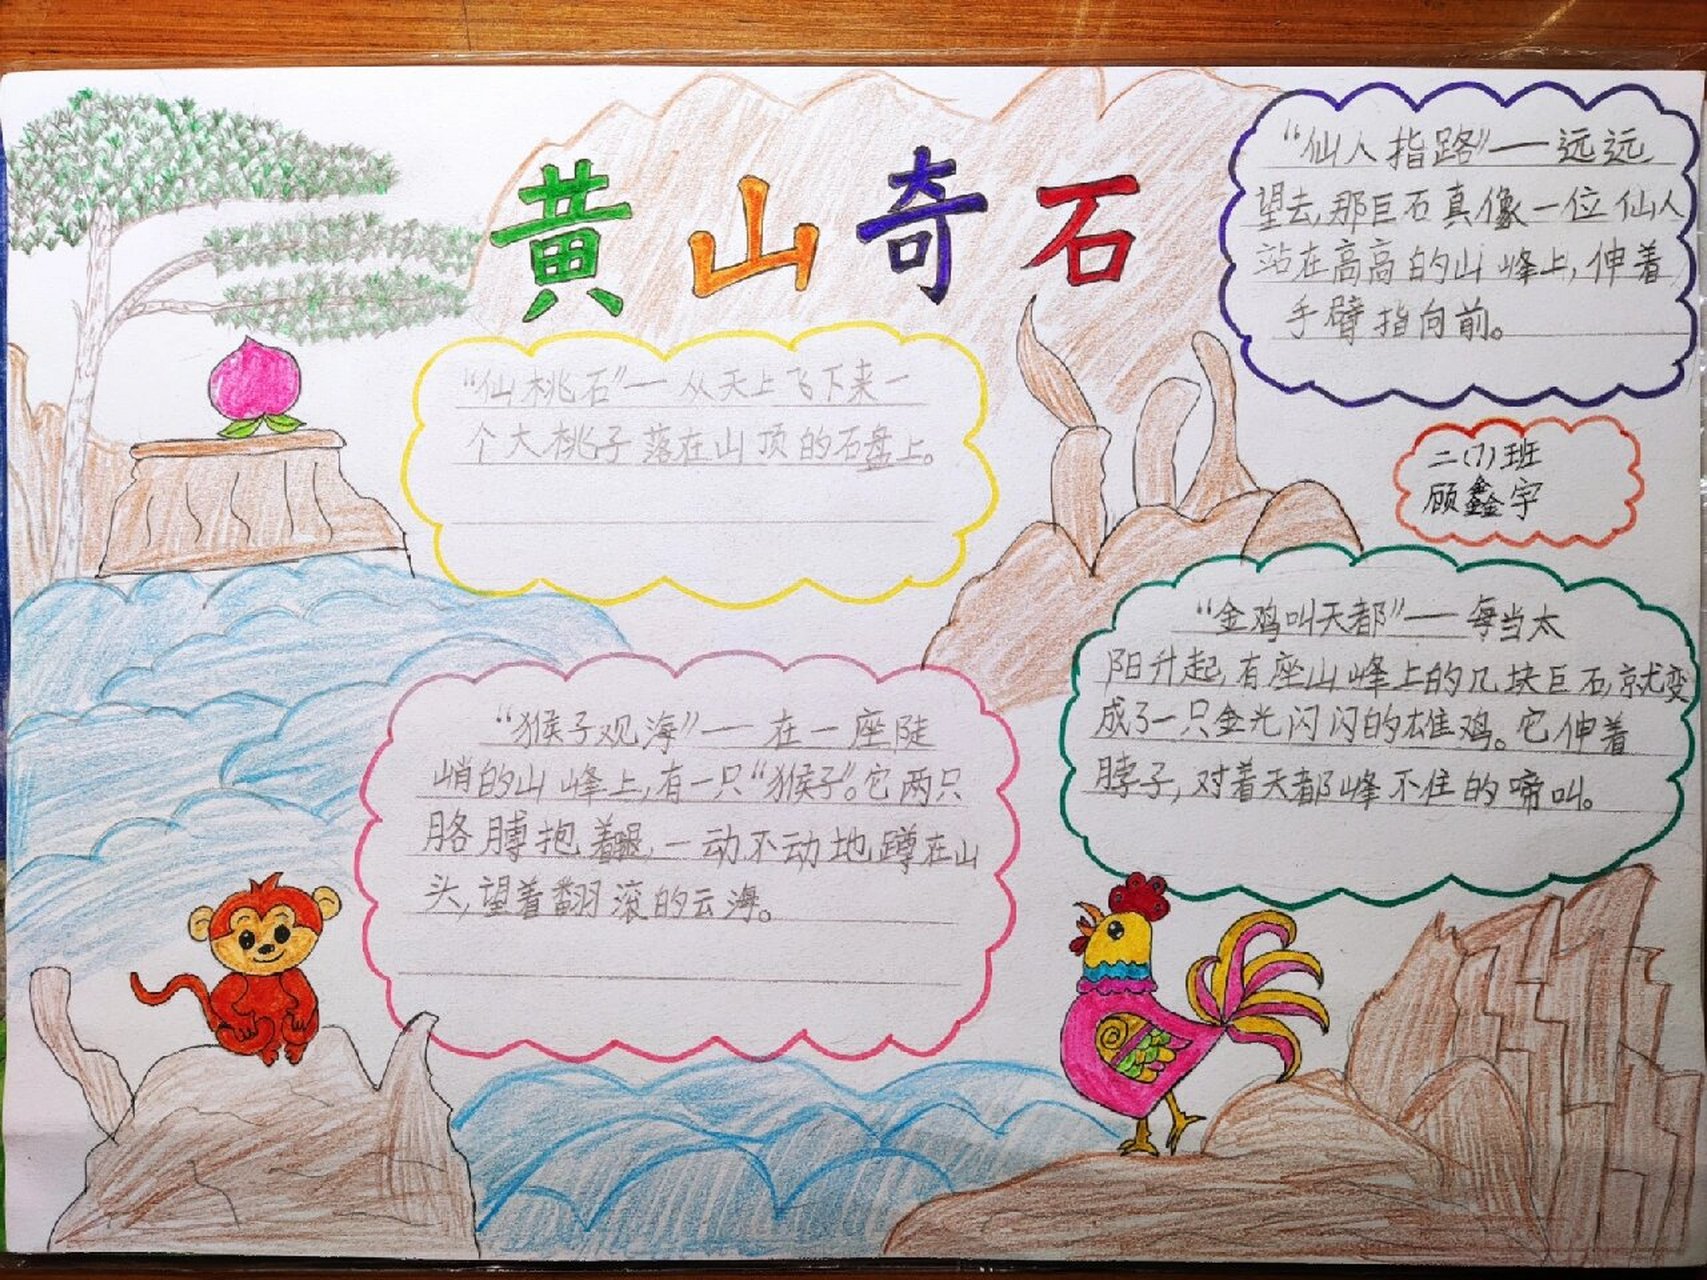 黄山奇石
“仙桃石”—从天上飞下来一
个大桃子落在山顶的石盘上。
“仙人指路”—远远
望去,那巨石真像一位仙人
站在高高的山峰上,伸着
手臂指向前。
二(7)班
顾鑫宇
“猴子观海”—在一座陡
峭的山峰上,有一只“猴子”。它两只
胳膊抱着腿,一动不动地蹲在山
头,望着翻滚的云海。
“金鸡叫天都”—每当太
阳升起,有座山峰上的几块巨石,就变
成了一只金光闪闪的雄鸡。它伸着
脖子,对着天都峰不住的啼叫。